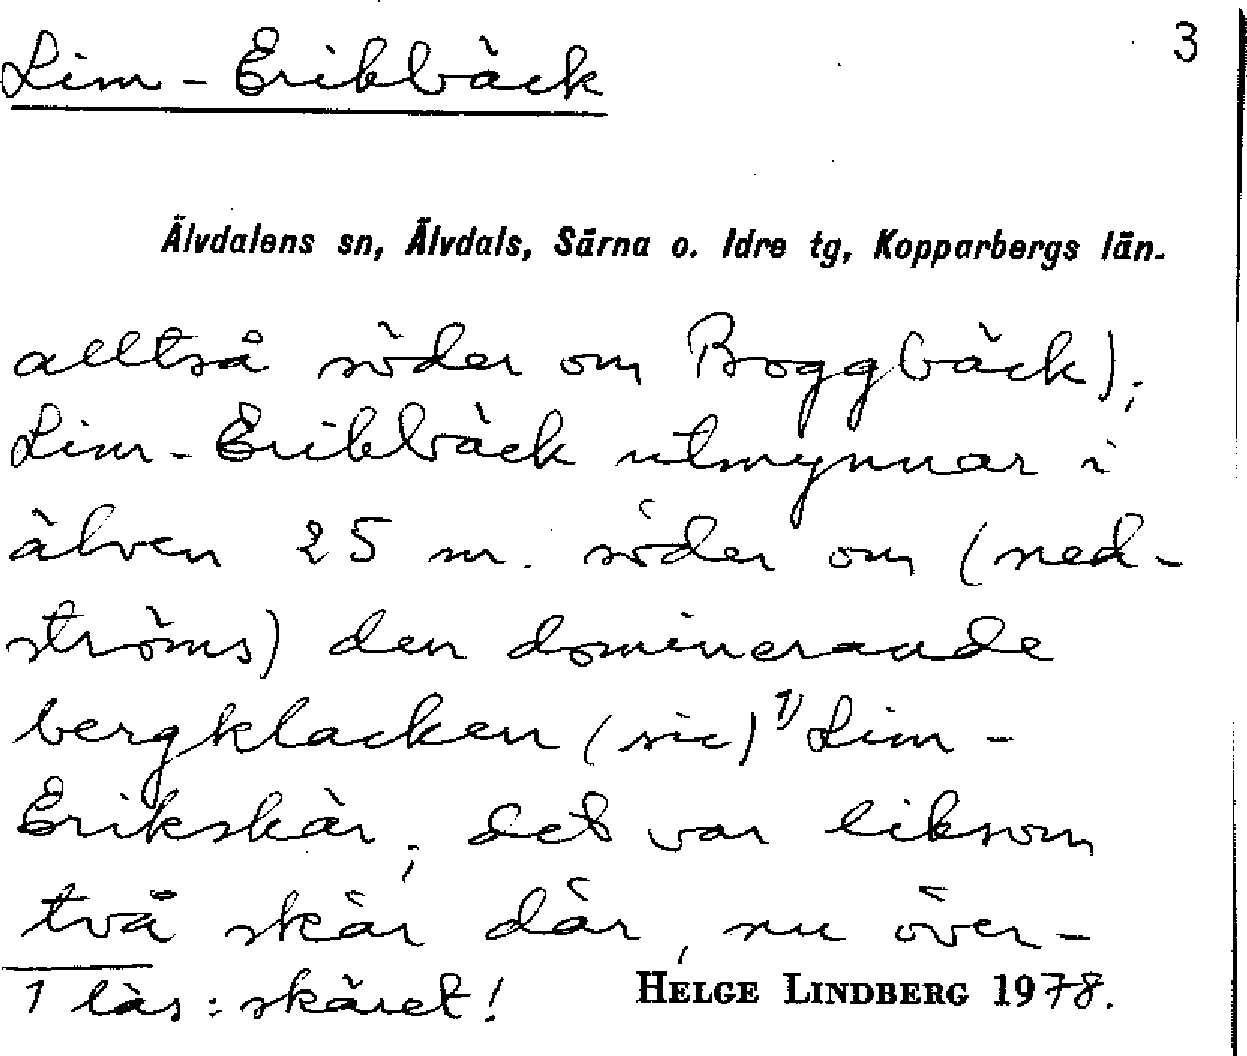 Lim-Erikbäck
3
Älvdalens sn, Älvdals, Särna o. Idre tg, Kopparbergs län.
alltså söder om Broggbäck);
Lim-Erikbäck utmynnar i
älven 25 m. söder om (ned-
ströms) den dominerande
bergklacken (sic) 1) Lim-
Erikskär; det var liksom
två skär där, nu över-
1 läs: skäret!
HELGE LINDBERG 1978.